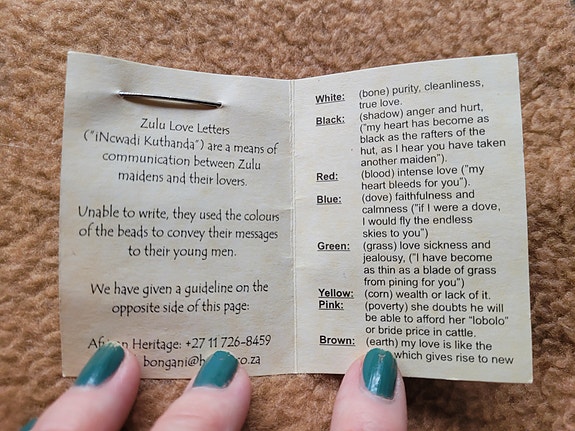 Zulu Love Letters
("iNcwadi Kuthanda") are a means of
communication between Zulu
maidens and their lovers.
Unable to write, they used the colours
of the beads to convey their messages
to their young men.
We have given a guideline on the
opposite side of this page:
Heritage: +27 11 726-8459
bongani@
co.za
White: (bone) purity, cleanliness,
true love.
Black: (shadow) anger and hurt,
("my heart has become as
black as the rafters of the
hut, as I hear you have taken
another maiden").
Red: (blood) intense love ("my
heart bleeds for you").
Blue: (dove) faithfulness and
calmness ("if I were a dove,
I would fly the endless
skies to you")
Green: (grass) love sickness and
jealousy, ("I have become
as thin as a blade of grass
from pining for you")
Yellow: (corn) wealth or lack of it.
Pink: (poverty) she doubts he will
be able to afford her "lobolo"
or bride price in cattle.
Brown: (earth) my love is like the
which gives rise to new